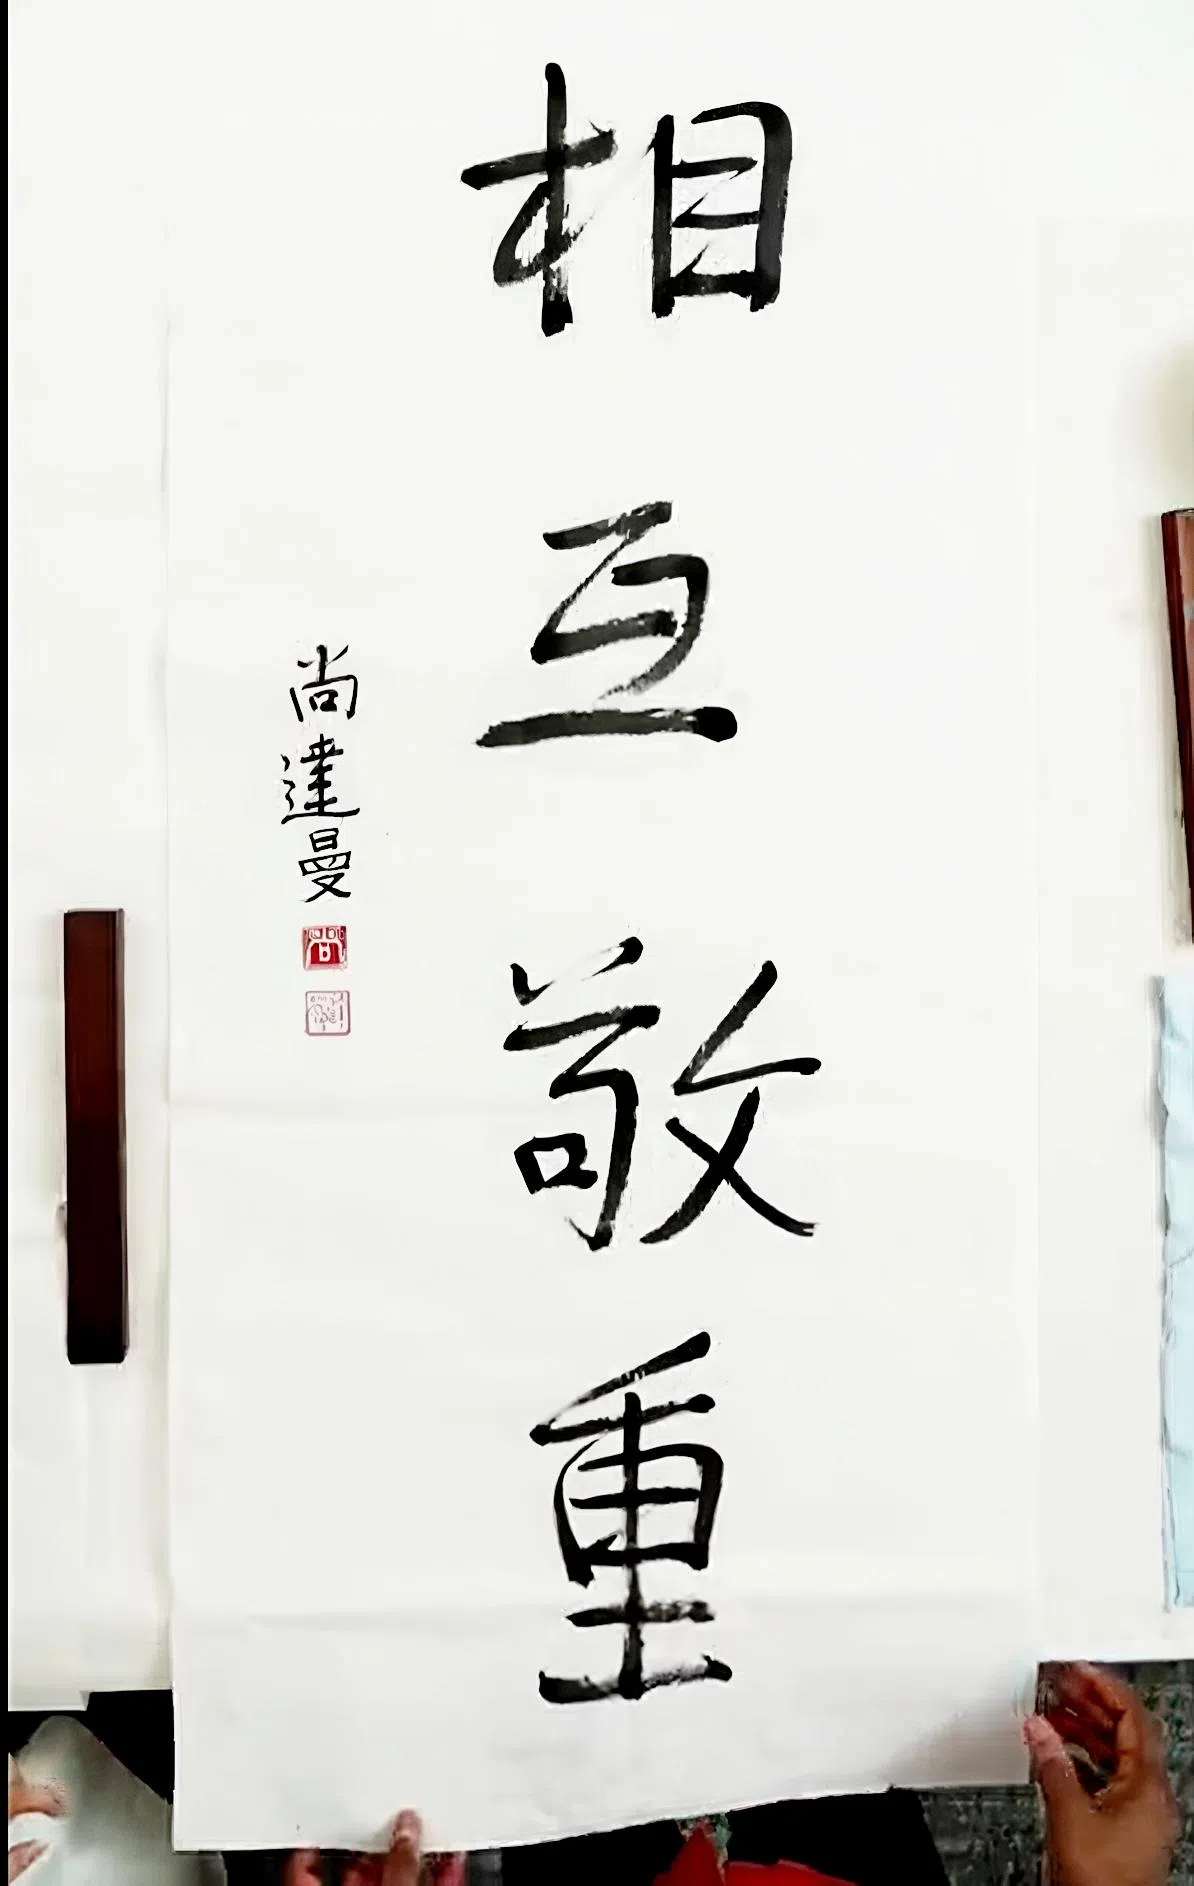 相互敬重
尚達曼
尚